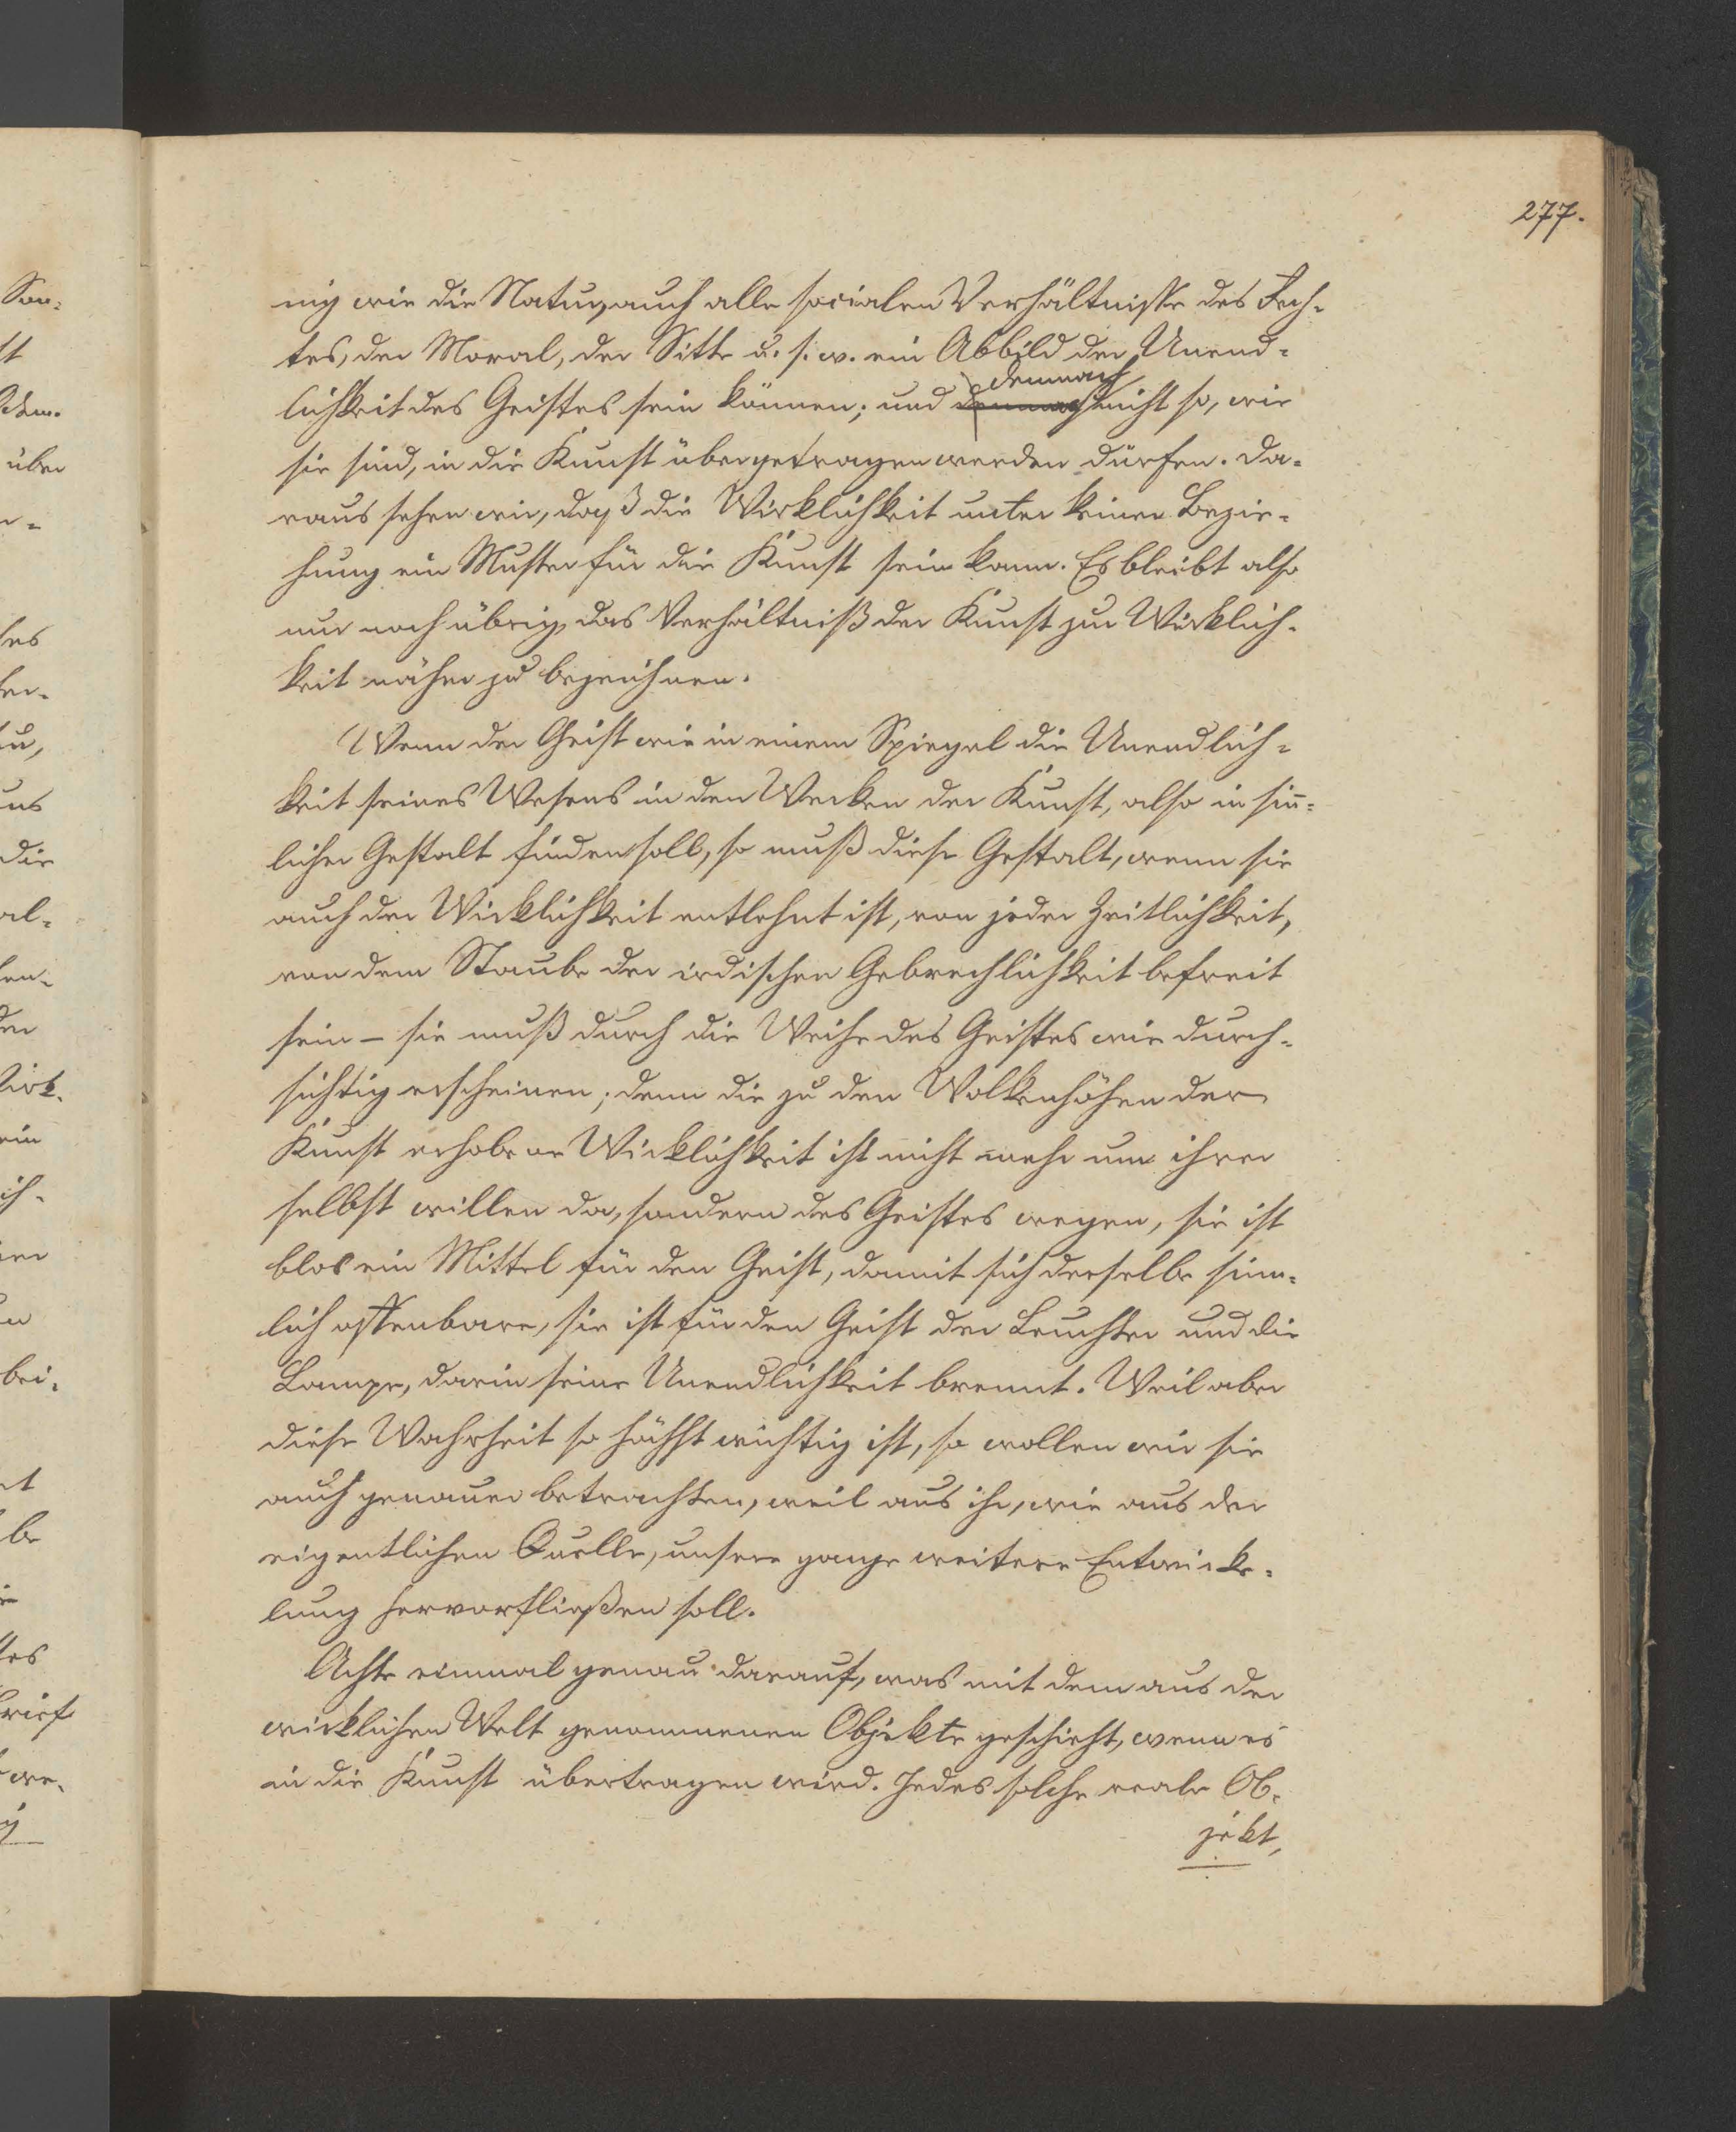 277.
nig wie die Natur, auch alle socialen Verhältnisse des Rech-
tes, der Moral, der Sitte u. s. w. ein Abbild der Unend-
lichkeit des Geistes sein können; und demnach nicht so, wie
sie sind, in die Kunst übergetragen werden dürfen. Da-
raus sehen wir, daß die Wirklichkeit unter keiner Bezie-
hung ein Muster für die Kunst sein kann. Es bleibt also
nur noch übrig, das Verhältniß der Kunst zur Wirklich-
keit näher zu bezeichnen.
Wenn der Geist wie in einem Spiegel die Unendlich-
keit seines Wesens in den Werken der Kunst, also in sin̄-
licher Gestalt finden soll, so muß diese Gestalt, wenn sie
auch der Wirklichkeit entlehnt ist, von jeder Zeitlichkeit,
von dem Staube der irdischen Gebrechlichkeit befreit
sein – sie muß durch die Weihe des Geistes wie durch-
sichtig erscheinen; denn die zu den Wolkenhöhen der
Kunst erhobene Wirklichkeit ist nicht mehr um ihrer
selbst willen da, sondern des Geistes wegen, sie ist
blos ein Mittel für den Geist, damit sich derselbe sinn-
lich offenbare, sie ist für den Geist der Leuchter und die
Lampe, darin seine Unendlichkeit brennt. Weil aber
diese Wahrheit so höchst wichtig ist, so wollen wir sie
auch genauer betrachten, weil aus ihr, wie aus der
eigentlichen Quelle, unsere ganze weitere Entwicke-
lung hervorfließen soll.
Achte einmal genau darauf, was mit dem aus der
wirklichen Welt genommenen Objekte geschieht, wenn es
in die Kunst übertragen wird. Jedes solche reale Ob-
jekt,